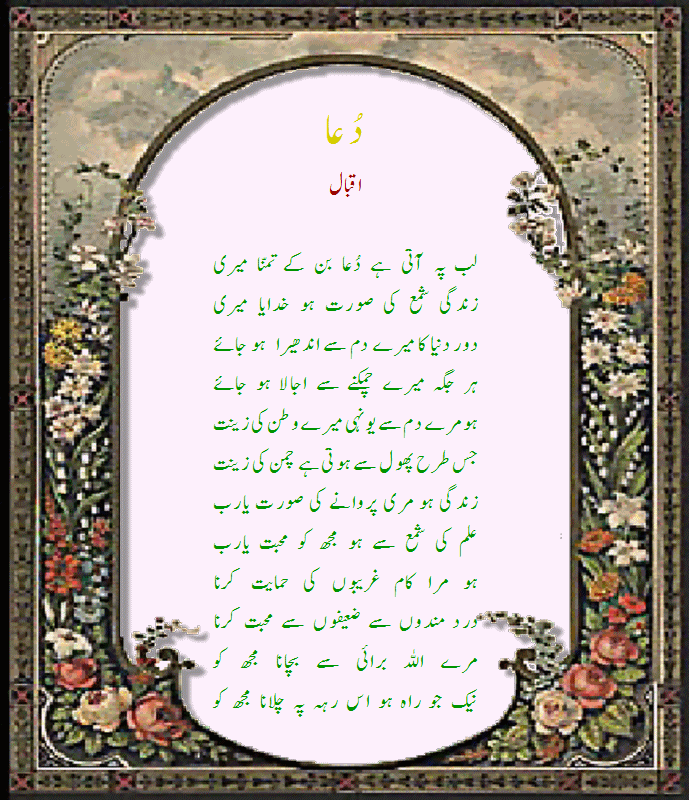 دُعا
اقبال
لب پہ آتی ہے دُعا بن کے تمنّا میری
زندگی شمع کی صورت ہو خدایا میری
دور دنیا کا میرے دم سے اندھیرا ہو جائے
ہر جگہ میرے چمکنے سے اجالا ہو جائے
ہو مرے دم سے یونہی میرے وطن کی زینت
جس طرح پھول سے ہوتی ہے چمن کی زینت
زندگی ہو مری پروانے کی صورت یارب
علم کی شمع سے ہو مجھ کو محبت یارب
ہو مرا کام غریبوں کی حمایت کرنا
درد مندوں سے ضعیفوں سے محبت کرنا
مرے اللہ برائی سے بچانا مجھ کو
نیک جو راہ ہو اس رہہ پہ چلانا مجھ کو